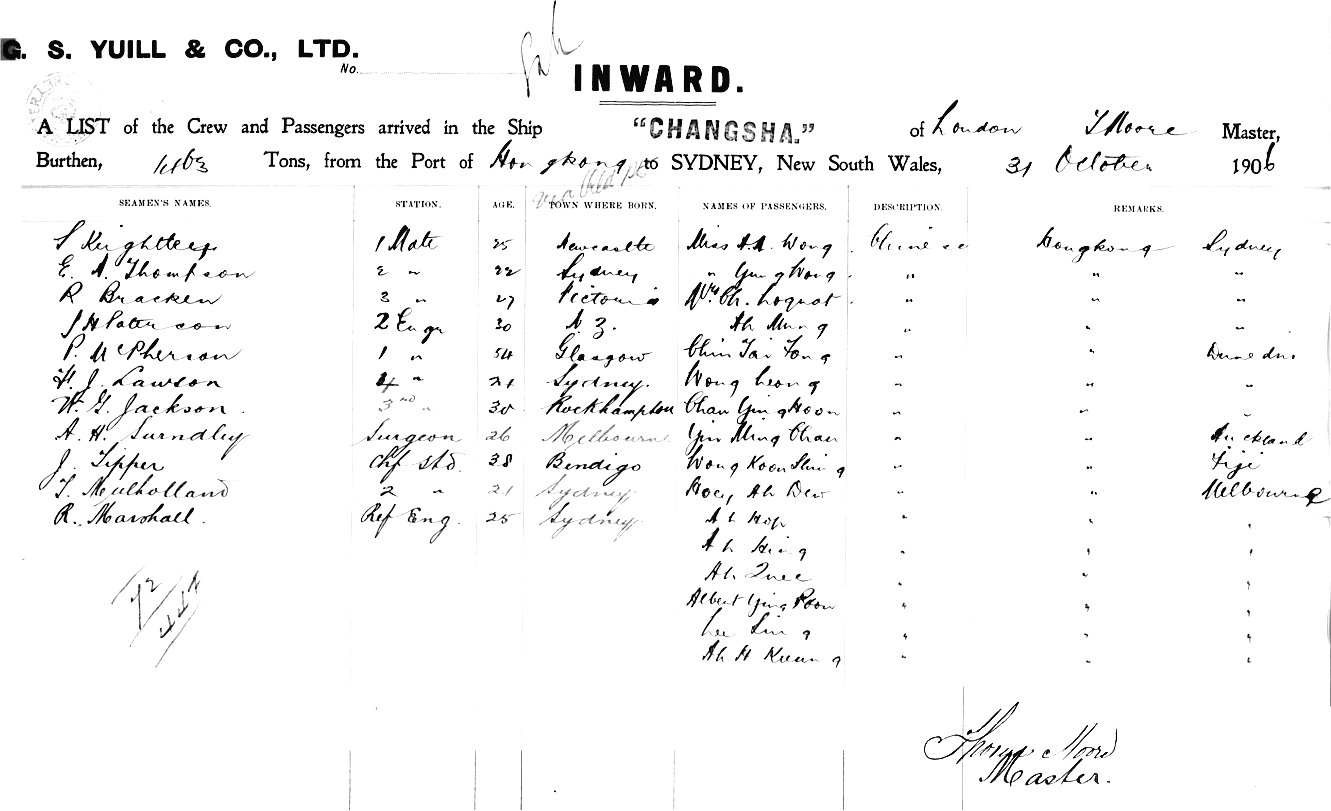 G. S. YUILL & CO., LTD.
No.
INWARD.
A LIST of the Crew and Passengers arrived in the Ship "CHANGSHA." of London T Moore Master,
Burthen, 1463 Tons, from the Port of Hongkong to SYDNEY, New South Wales, 31 October 1906
SEAMEN'S NAMES. STATION. AGE. TOWN WHERE BORN. NAMES OF PASSENGERS. DESCRIPTION. REMARKS.
S Keightley 1 Mate 25 Newcastle Miss A.A. Wong Chinese Hongkong Sydney
E. A. Thompson 2 " 22 Sydney " Ying Wong " " "
R Bracken 3 " 27 Victoria Mrs Ch. Loquat " " "
J H Paterson 2 Engr 30 N. Z. Ah Mung " " "
P. McPherson 1 " 54 Glasgow Chin Tai Fong " " Dunedin
H. J. Lawson 4 " 21 Sydney. Wong Leong " " "
W. G. Jackson. 3nd " 30 Rockhampton Chan Ying Hoon " " "
A. H. Surndley Surgeon 26 Melbourne Yin Ming Chan " " Auckland
J. Tipper Chf Std. 38 Bendigo Wong Koon Shing " " Fiji
T. Mulholland 2 " 21 Sydney Hoey Ah Dew " " Melbourne
R. Marshall. Ref Eng. 25 Sydney Ah Hop " " "
Ah Hing " " "
Ah Quee " " "
Albert Ying Poon " " "
Lee Sing " " "
Ah H Kueng " " "
72
44
Thomas Moore
Master.